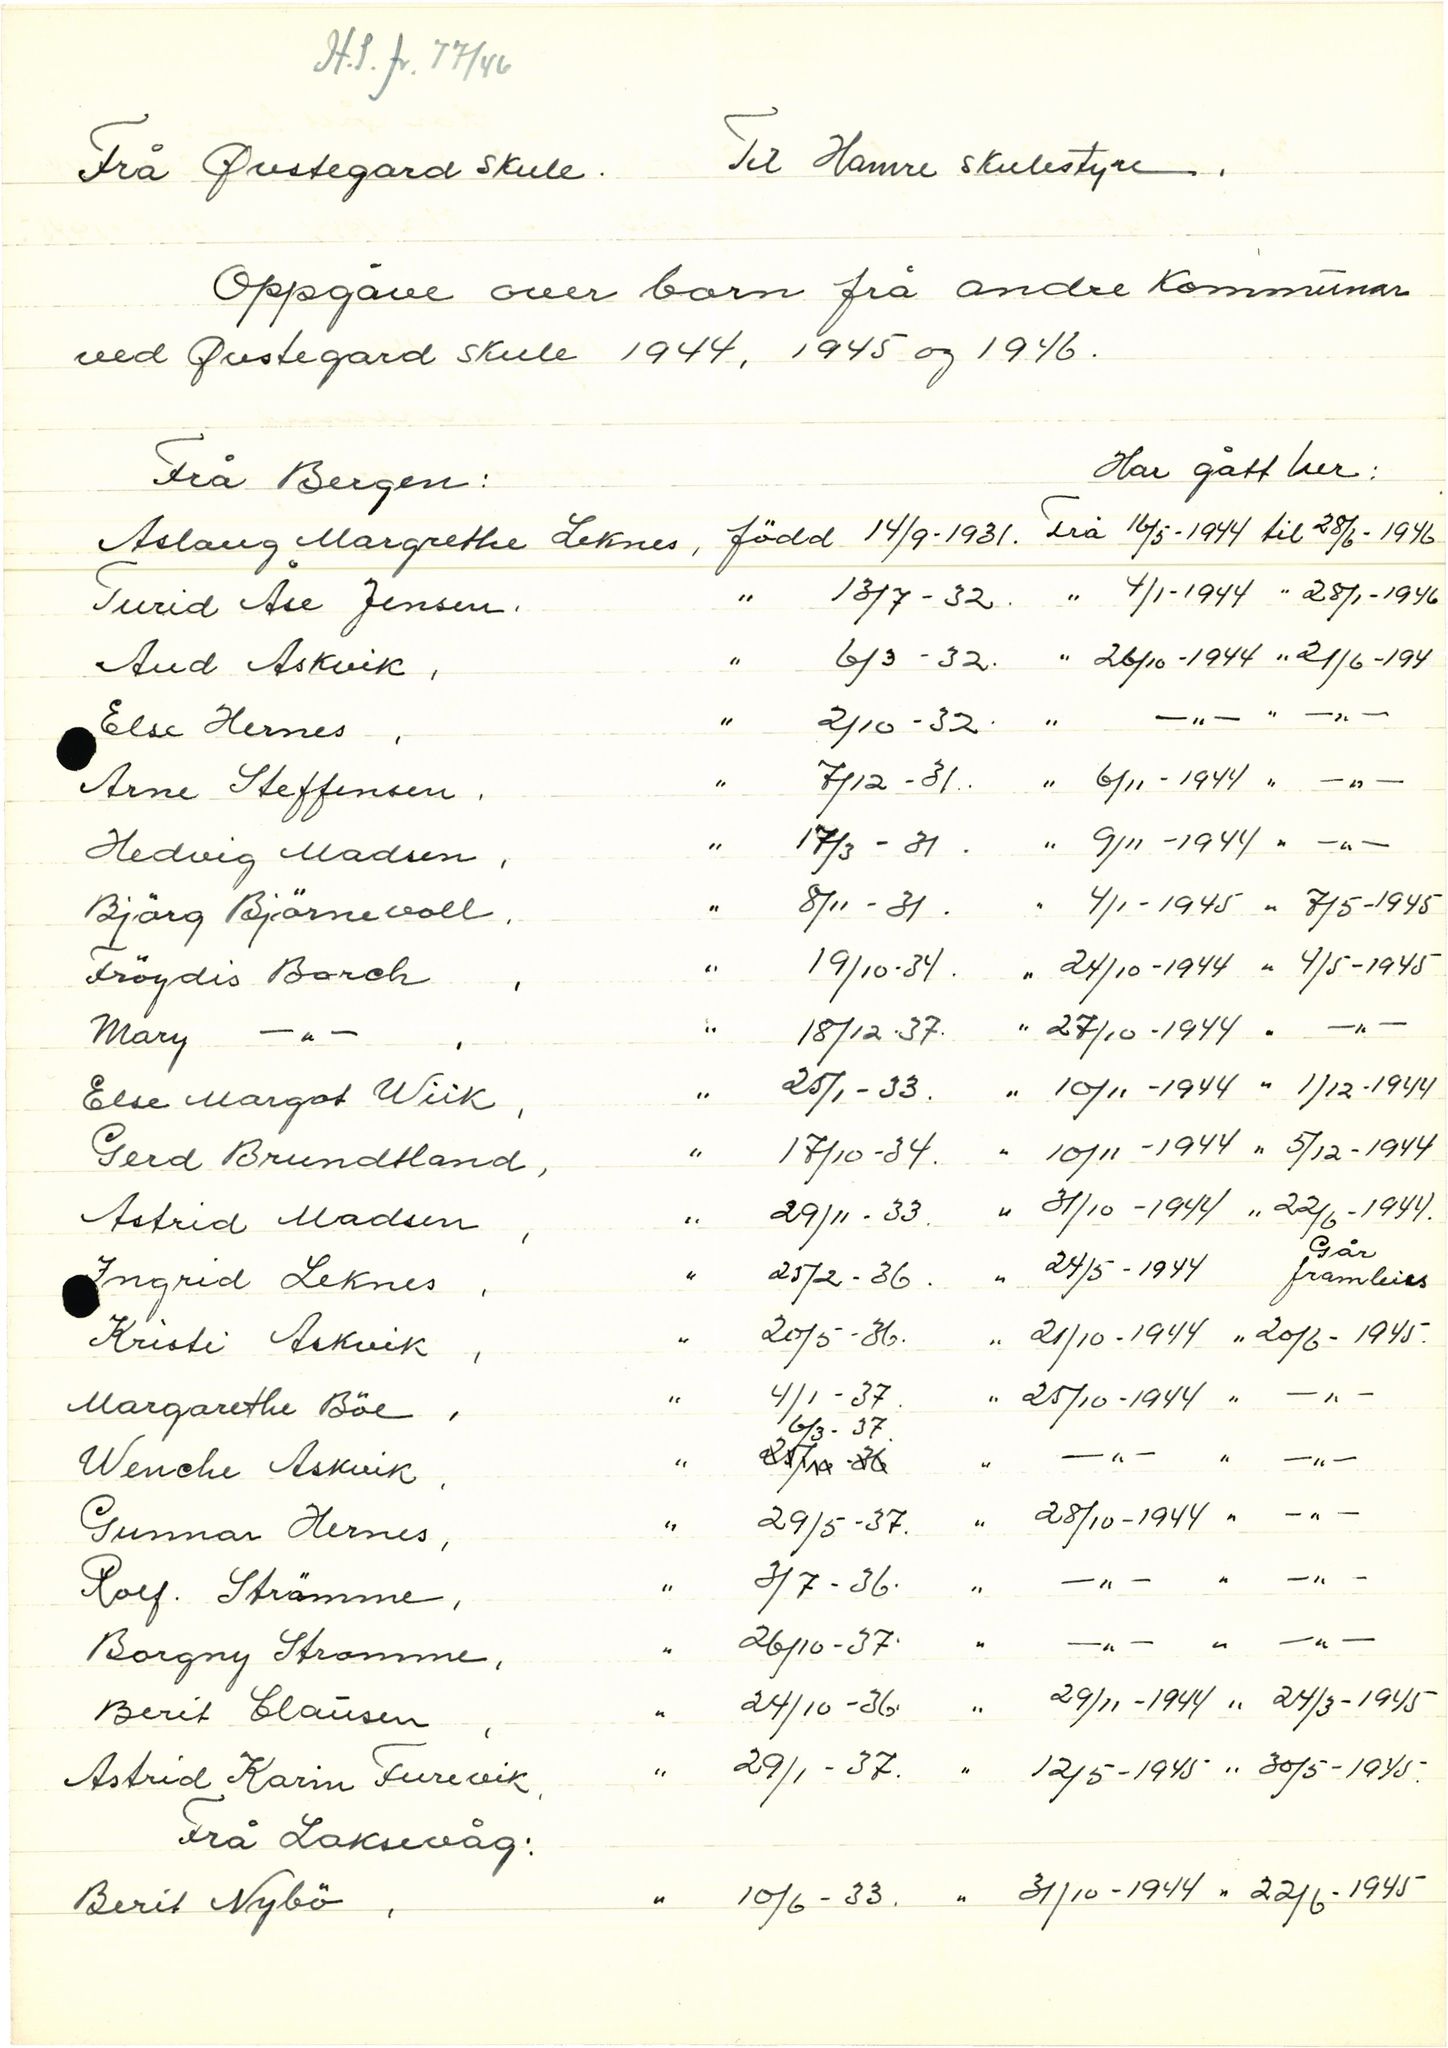 H.S. jr. 77/46
Frå Øvstegard skule. Til Hamre skulestyre.
Oppgåve over born frå andre kommunar
ved Øvstegard skule 1944, 1945 og 1946.
Frå Bergen: Har gått her:
Aslaug Margrethe Leknes, född 14/9-1931. Frå 16/5-1944 til 28/6-1946
Turid Åse Jensen. " 13/7-32. " 4/1-1944 " 28/1-1946
Aud Askvik, " 6/3-32. " 26/10-1944 " 21/6-194
Else Hernes, " 2/10-32. " —"— " —"—
Arne Steffensen. " 7/12-31. " 6/11-1944 " —"—
Hedvig Madsen, " 17/3-31. " 9/11-1944 " —"—
Bjärg Björnevoll. " 8/11-31. " 4/1-1945 " 7/5-1945
Fröydis Borch, " 19/10-34. " 24/10-1944 " 4/5-1945
Mary —"—, " 18/12-37. " 27/10-1944 " —"—
Else Margot Wiik, " 25/1-33. " 10/11-1944 " 1/12-1944
Gerd Brundtland, " 17/10-34. " 10/11-1944 " 5/12-1944
Astrid Madsen, " 29/11-33. " 31/10-1944 " 22/6-1944.
Ingrid Leknes, " 25/2-36. " 24/5-1944 Går framleis
Kristi Askvik, " 20/5-36. " 21/10-1944 " 20/6-1945.
Margarethe Böe, " 4/1-37. " 25/10-1944 " —"—
6/3-37.
Wenche Askvik, " " —"— " —"—
Gunnar Hernes, " 29/5-37. " 28/10-1944 " —"—
Rolf. Strämme, " 3/7-36. " —"— " —"—
Borgny Stromme, " 26/10-37. " —"— " —"—
Berit Clausen, " 24/10-36. " 29/11-1944 " 24/3-1945
Astrid Karin Furevik, " 29/1-37. " 12/5-1945 " 30/5-1945.
Frå Laksevåg:
Berit Nybö, " 10/6-33. " 31/10-1944 " 22/6-1945